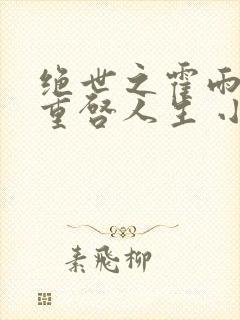 绝世之霍雨
重启人生 小
素飛柳